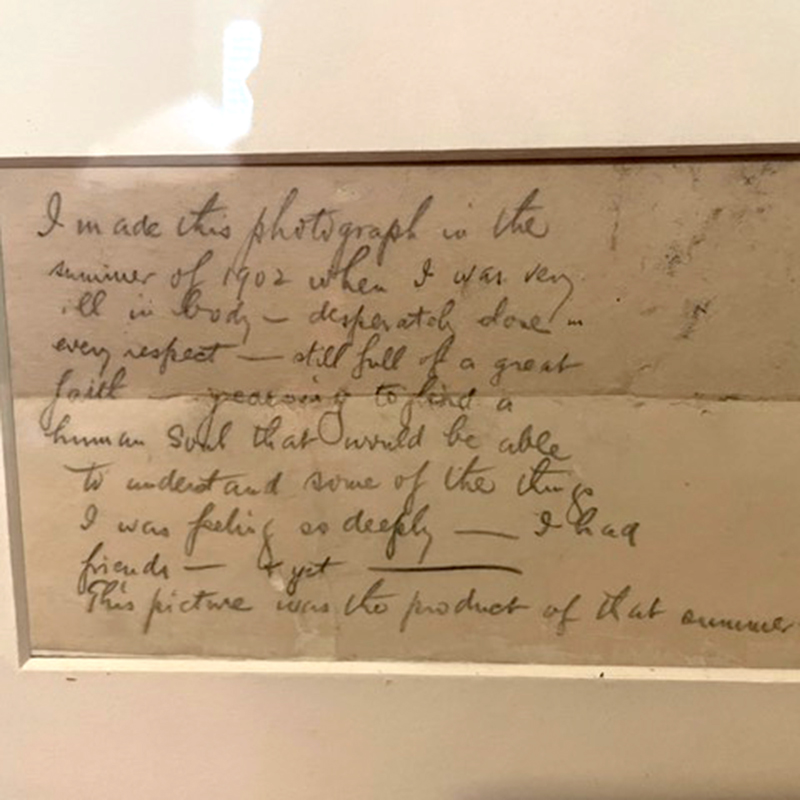 I made this photograph in the
summer of 1902 when I was very
ill in body — desperately alone in
every respect — still full of a great
faith — yearning to find a
human soul that would be able
to understand some of the things
I was feeling so deeply — I had
friends — & yet ———
This picture was the product of that summer